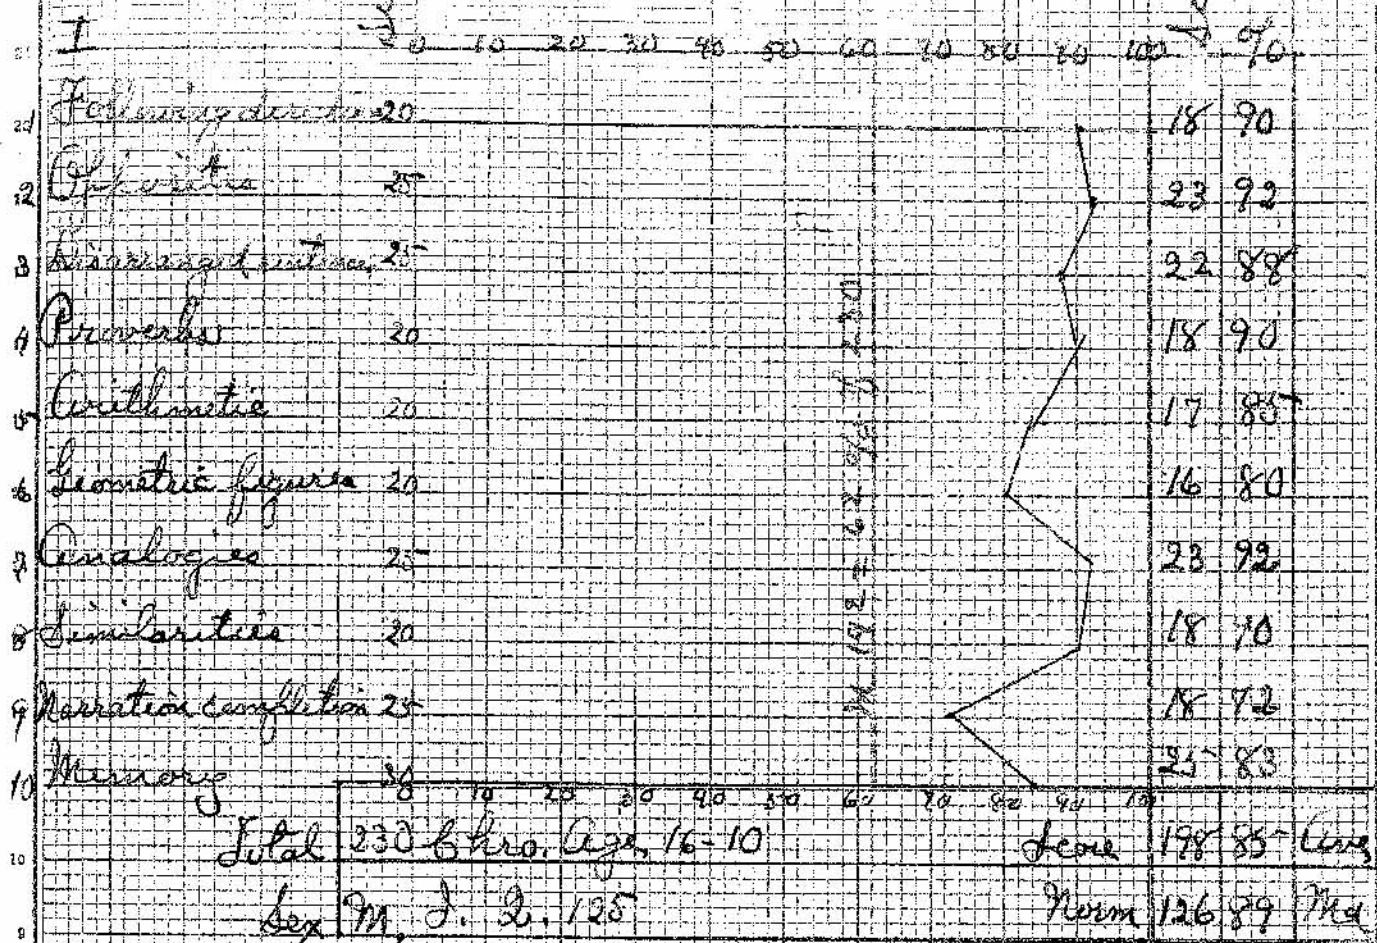 I 0 10 20 30 40 50 60 70 80 90 100 %
Following 20 18 90
2 Opposites 25 23 92
3 Disarranged sentences 25 22 88
4 Proverbs 20 18 90
5 Arithmetic 20 17 85
6 Geometric figures 20 16 80
7 Analogies 25 23 92
8 Similarities 20 18 90
9 Narration completion 25 18 72
10 Memory 30 25 83
0 10 20 30 40 50 60 70 80 90 100
Total 230 Chro. Age, 16-10 Score 198 85 Avg
Sex M. I. Q. 125 Norm 126 89 Md